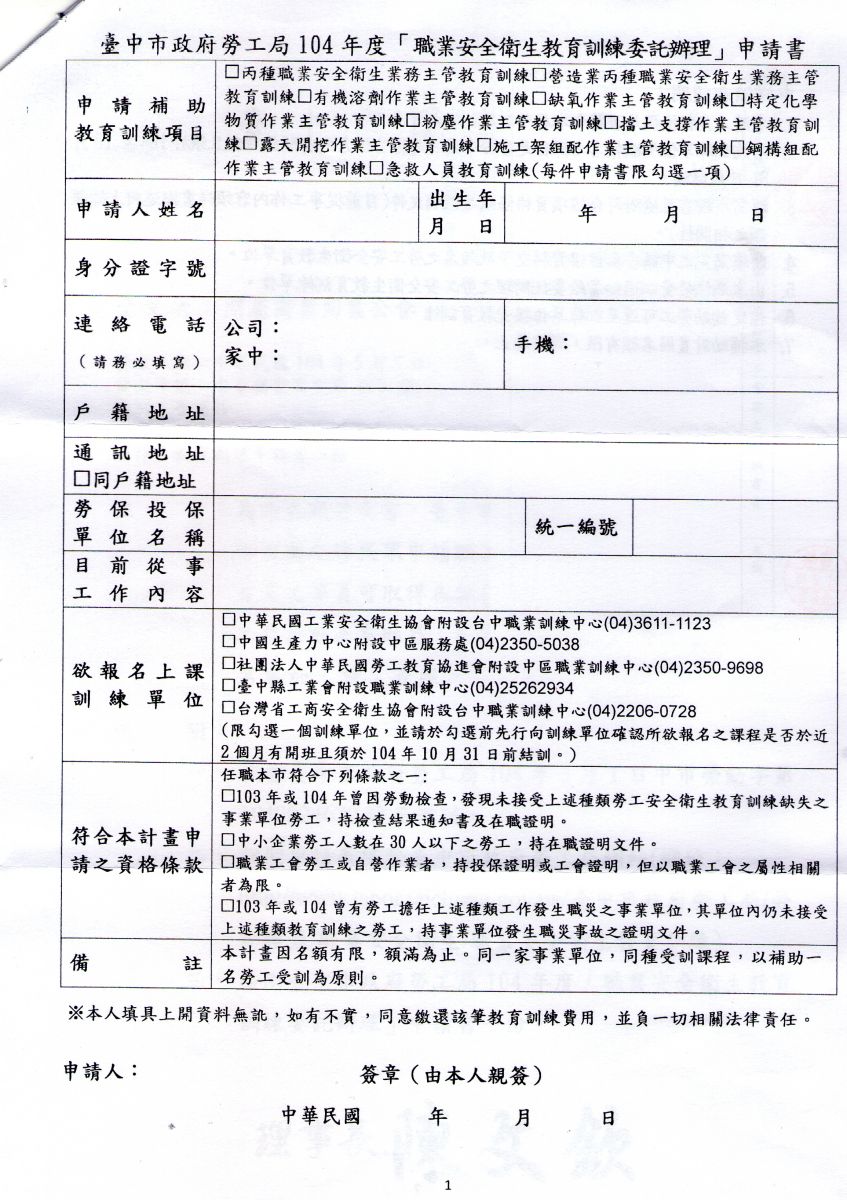 臺中市政府勞工局 104 年度「職業安全衛生教育訓練委託辦理」申請書
申請補助
教育訓練項目
□丙種職業安全衛生業務主管教育訓練□營造業丙種職業安全衛生業務主管
教育訓練□有機溶劑作業主管教育訓練□缺氧作業主管教育訓練□特定化學
物質作業主管教育訓練□粉塵作業主管教育訓練□擋土支撐作業主管教育訓
練□露天開挖作業主管教育訓練□施工架組配作業主管教育訓練□鋼構組配
作業主管教育訓練□急救人員教育訓練(每件申請書限勾選一項)
申請人姓名
出生年
月 日
年 月 日
身分證字號
連絡電話
(請務必填寫)
公司：
家中：
手機：
戶籍地址
通訊地址
□同戶籍地址
勞保投保
單位名稱
統一編號
目前從事
工作內容
欲報名上課
訓練單位
□中華民國工業安全衛生協會附設台中職業訓練中心(04)3611-1123
□中國生產力中心附設中區服務處(04)2350-5038
□社團法人中華民國勞工教育協進會附設中區職業訓練中心(04)2350-9698
□臺中縣工業會附設職業訓練中心(04)25262934
□台灣省工商安全衛生協會附設台中職業訓練中心(04)2206-0728
(限勾選一個訓練單位，並請於勾選前先行向訓練單位確認所欲報名之課程是否於近
2 個月有開班且須於 104 年 10 月 31 日前結訓。)
符合本計畫申
請之資格條款
任職本市符合下列條款之一:
□103 年或 104 年曾因勞動檢查，發現未接受上述種類勞工安全衛生教育訓練缺失之
事業單位勞工，持檢查結果通知書及在職證明。
□中小企業勞工人數在 30 人以下之勞工，持在職證明文件。
□職業工會勞工或自營作業者，持投保證明或工會證明，但以職業工會之屬性相關
者為限。
□103 年或 104 曾有勞工擔任上述種類工作發生職災之事業單位，其單位內仍未接受
上述種類教育訓練之勞工，持事業單位發生職災事故之證明文件。
備註
本計畫因名額有限，額滿為止。同一家事業單位，同種受訓課程，以補助一
名勞工受訓為原則。
※本人填具上開資料無訛，如有不實，同意繳還該筆教育訓練費用，並負一切相關法律責任。
申請人： 簽章（由本人親簽）
中華民國 年 月 日
1